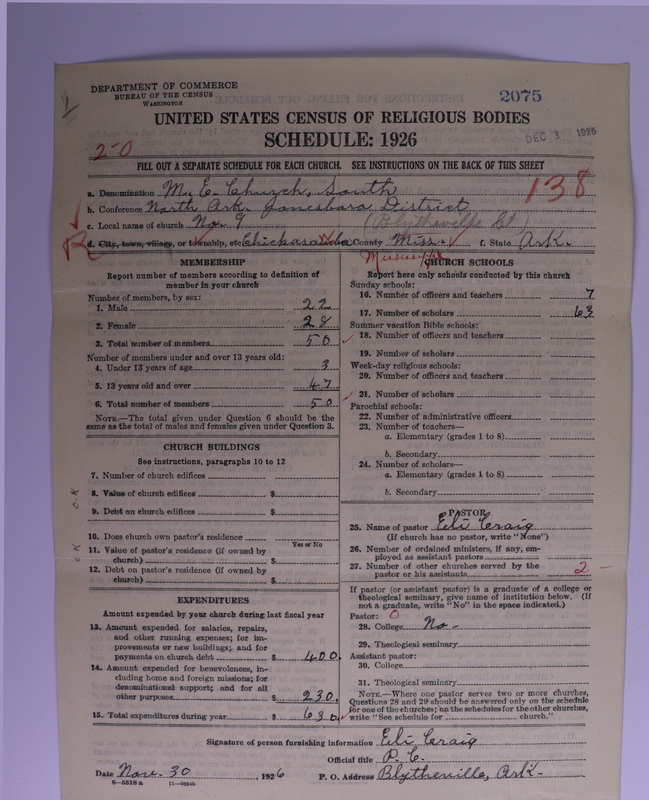 DEPARTMENT OF COMMERCE
BUREAU OF THE CENSUS
WASHINGTON
2075
UNITED STATES CENSUS OF RELIGIOUS BODIES
SCHEDULE: 1926
DEC 3 1926
2-0
FILL OUT A SEPARATE SCHEDULE FOR EACH CHURCH. SEE INSTRUCTIONS ON THE BACK OF THIS SHEET
138
a. Denomination M. E. Church, South
b. Conference North Ark. Jonesboro District
c. Local name of church No. 9
d. City, town, village, or township, etc. Chickasawba County Miss. f. State Ark.
Mississippi
MEMBERSHIP
Report number of members according to definition of
member in your church
Number of members, by sex:
1. Male 22
2. Female 28
3. Total number of members 50
Number of members under and over 13 years old:
4. Under 13 years of age 3
5. 13 years old and over 47
6. Total number of members 50
NOTE.—The total given under Question 6 should be
same as the total of males and females given under Question 3.
CHURCH BUILDINGS
See instructions, paragraphs 10 to 12
7. Number of church edifices
8. Value of church edifices $
9. Debt on church edifices $
10. Does church own pastor's residence
Yes or No
11. Value of pastor's residence (if owned by
church) $
12. Debt on pastor's residence (if owned by
church) $
O.K
OK
EXPENDITURES
Amount expended by your church during last fiscal year
13. Amount expended for salaries, repairs,
and other running expenses; for im-
provements or new buildings; and for
payments on church debt $ 400.
14. Amount expended for benevolences, in-
cluding home and foreign missions; for
denominational support; and for all
other purposes $ 230.
15. Total expenditures during year $ 630.
CHURCH SCHOOLS
Report here only schools conducted by this church
Sunday schools:
16. Number of officers and teachers 7
17. Number of scholars 63
Summer vacation Bible schools:
18. Number of officers and teachers
19. Number of scholars
Week-day religious schools:
20. Number of officers and teachers
21. Number of scholars
Parochial schools:
22. Number of administrative officers
23. Number of teachers—
a. Elementary (grades 1 to 8)
b. Secondary
24. Number of scholars—
a. Elementary (grades 1 to 8)
b. Secondary
PASTOR
25. Name of pastor Eli Craig
(If church has no pastor, write "None")
26. Number of ordained ministers, if any, em-
ployed as assistant pastors
27. Number of other churches served by the
pastor or his assistants 2 -
If pastor (or assistant pastor) is a graduate of a college or
theological seminary, give name of institution below. (If
not a graduate, write "No" in the space indicated.)
Pastor: 0
28. College No -
29. Theological seminary
Assistant pastor:
30. College
31. Theological seminary
NOTE.—Where one pastor serves two or more churches,
Questions 28 and 29 should be answered only on the schedule
for one of the churches; on the schedules for the other churches,
write "See schedule for church."
Signature of person furnishing information Eli Craig
Official title P. C.
Date Nov. 30, 1926 P. O. Address Blytheville, Ark-
8-5518a